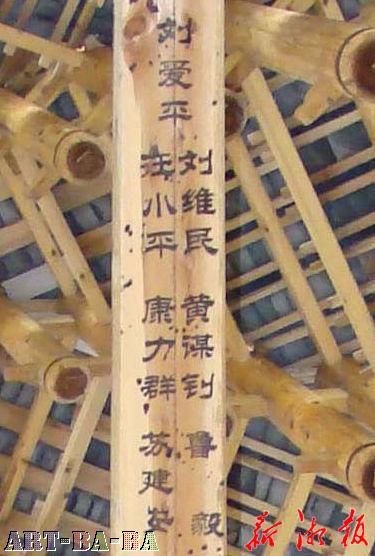 刘爱平
刘维民 黄谋钊 鲁毅
小平 康力群 苏建
ART-BA-BA
新湘报